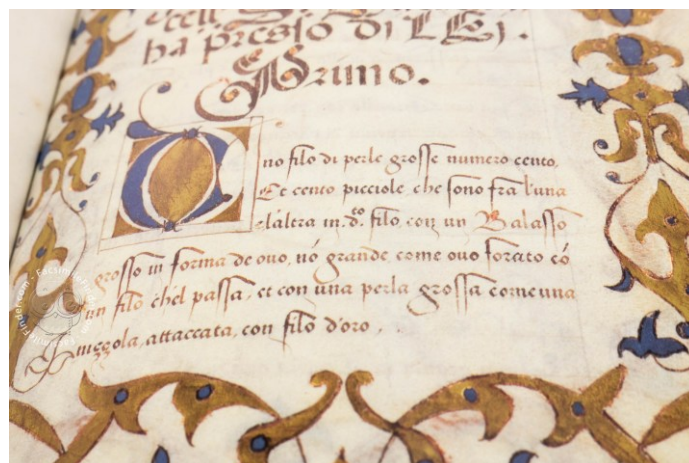 ha presso di LEi.
Primo.
Uno filo di perle grosse numero cento,
Et cento picciole che sono fra l'una
e l'altra in d.to filo, con un Balasso
grosso in forma de ouo, nó grande, come ouo forato có
un filo ch'el passa, et con una perla grossa come una
attaccata, con filo d'oro,